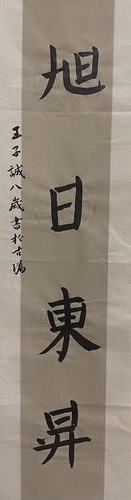 旭日東昇
王子誠八歲書於古滃